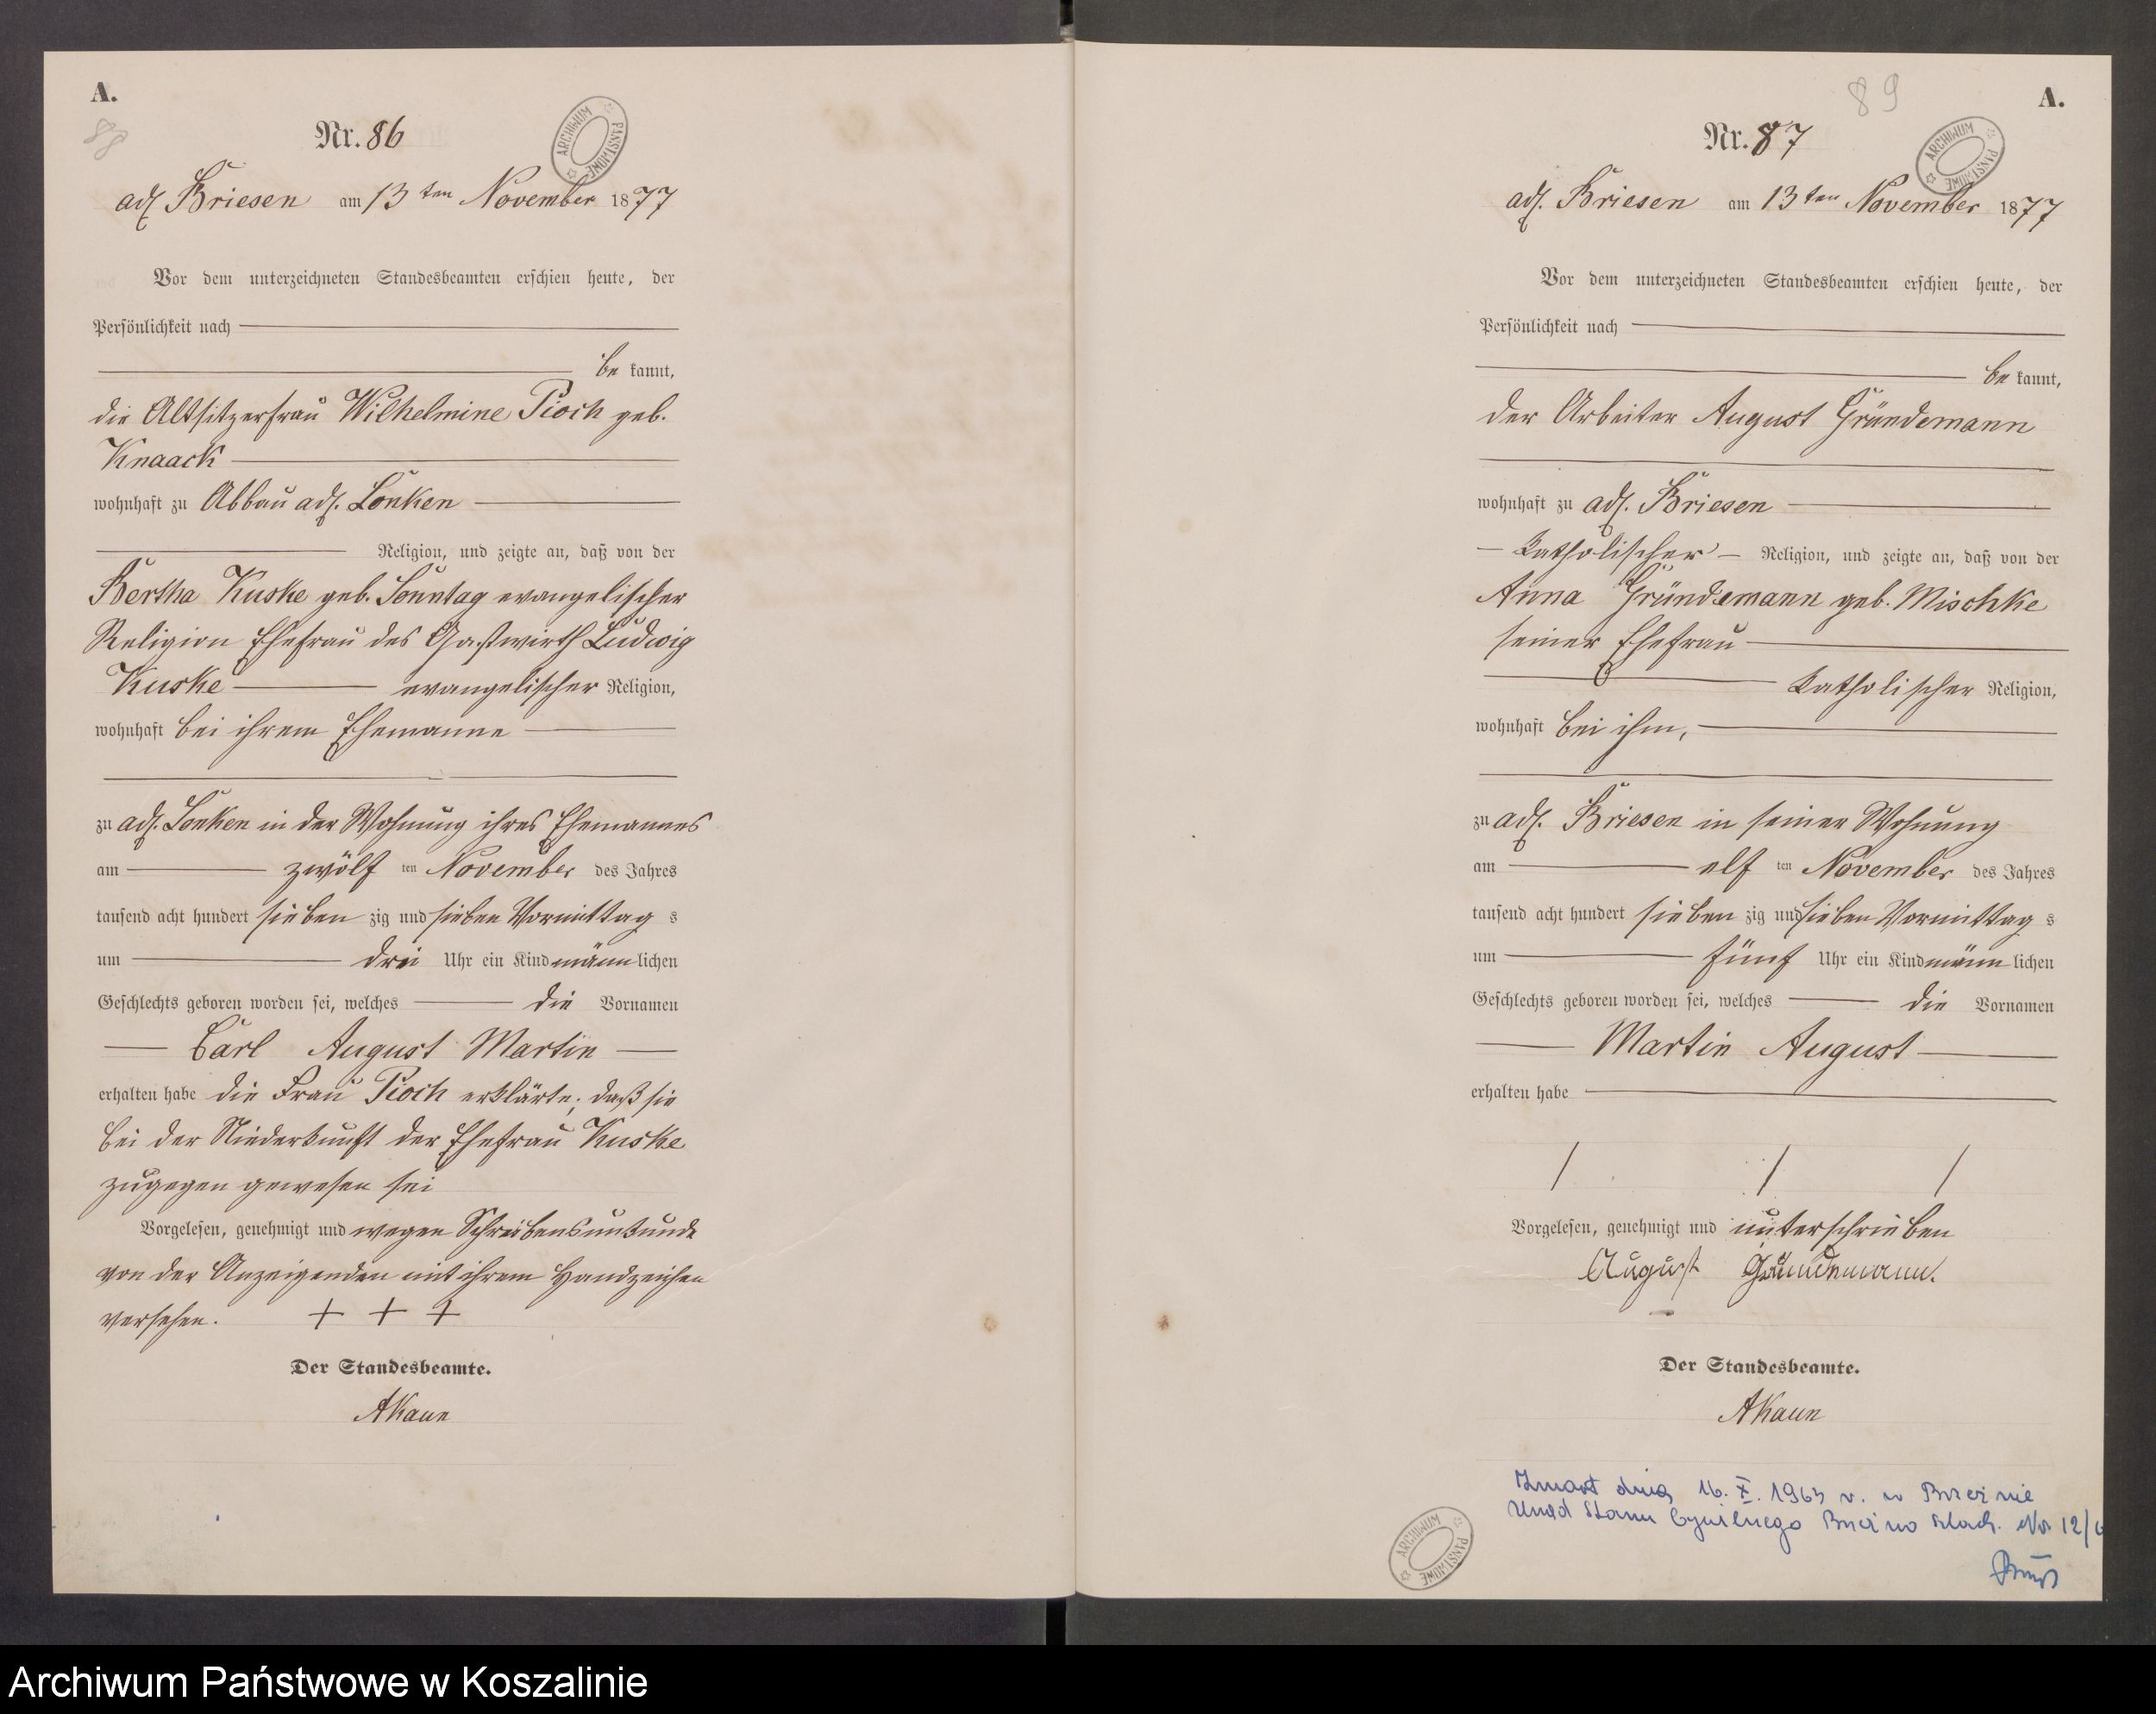 A.
88
Nr. 86
ARCHIWUM PAŃSTWOWE
adl Briesen am 13 ten November 1877
Vor dem unterzeichneten Standesbeamten erschien heute, der
Persönlichkeit nach
be kannt,
die Altsitzerfrau Wilhelmine Pioch geb.
Knaack
wohnhaft zu Abbau adl. Lonken
Religion, und zeigte an, daß von der
Bertha Kuske geb. Sonntag evangelischer
Religion Ehefrau des Gastwirth Ludwig
Kuske evangelischer Religion,
wohnhaft bei ihrem Ehemanne
zu adl. Lonken in der Wohnung ihres Ehemannes
am zwölf ten November des Jahres
tausend acht hundert sieben zig und sieben Vormittag s
um drei Uhr ein Kind männ lichen
Geschlechts geboren worden sei, welches die Vornamen
Carl August Martin
erhalten habe die Frau Pioch erklärte, daß sie
bei der Niederkunft der Ehefrau Kuske
zugegen gewesen sei
Vorgelesen, genehmigt und wegen Schreibensunkunde
von der Anzeigenden mit ihrem Handzeichen
versehen. + + +
Der Standesbeamte.
AKaun
89
A.
Nr. 87
ARCHIWUM PAŃSTWOWE
adl. Briesen am 13 ten November 1877
Vor dem unterzeichneten Standesbeamten erschien heute, der
Persönlichkeit nach
be kannt,
der Arbeiter August Gründemann
wohnhaft zu adl. Briesen
katholischer Religion, und zeigte an, daß von der
Anna Gründemann geb. Mischke
seiner Ehefrau
katholischer Religion,
wohnhaft bei ihm,
zu adl. Briesen in seiner Wohnung
am elf ten November des Jahres
tausend acht hundert sieben zig und sieben Vormittag s
um fünf Uhr ein Kind männ lichen
Geschlechts geboren worden sei, welches die Vornamen
Martin August
erhalten habe
Vorgelesen, genehmigt und unterschrieben
August Gründemann.
Der Standesbeamte.
AKaun
Zmarł dnia 16. X. 1963 r. w Brzeźnie
Urząd Stanu Cywilnego Brzeźno Szlach. Nr 12/6
ARCHIWUM PAŃSTWOWE
Archiwum Państwowe w Koszalinie